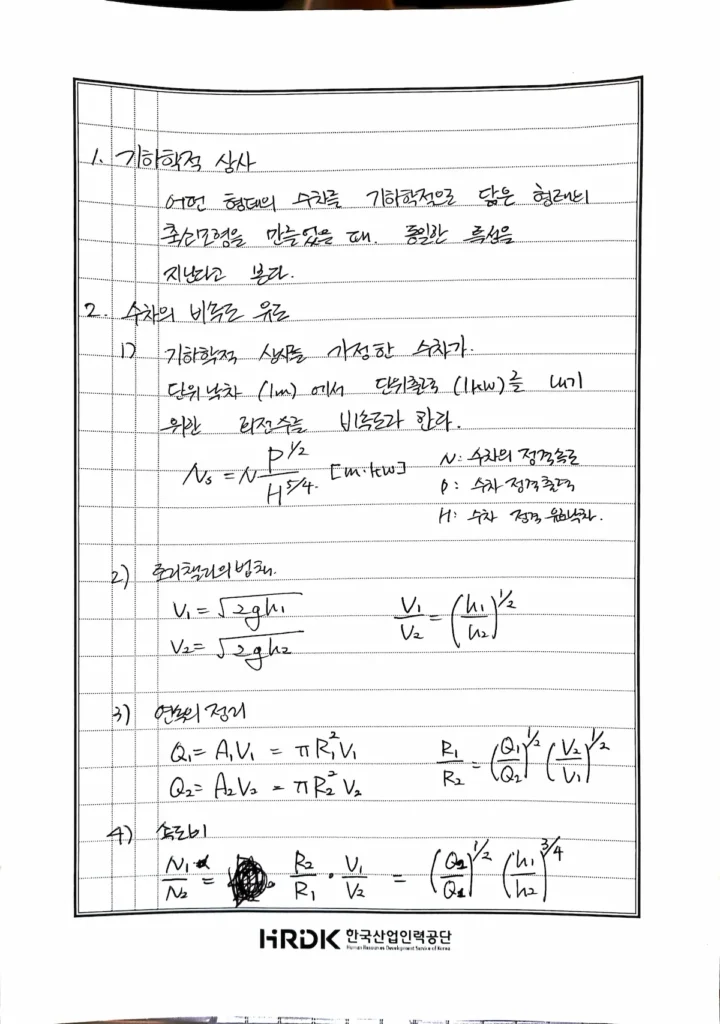 1. 기하학적 상사
어떤 형태의 수차를 기하학적으로 닮은 형태의
축소모형을 만들었을 때. 동일한 특성을
지닌다고 본다.
2. 수차의 비속도 유도
1) 기하학적 상사를 가정한 수차가
단위낙차 (1m) 에서 단위출력 (1kW)를 내기
위한 회전수를 비속도라 한다.
Ns = N P^1/2 / H^5/4. [m·kW]
N: 수차의 정격속도
P: 수차 정격출력
H: 수차 정격 유효낙차.
2) 토리첼리의 법칙.
V₁ = √2gh₁ V₁/V₂ = (h₁/h₂)^1/2
V₂ = √2gh₂
3) 연속의 정리
Q₁ = A₁V₁ = πR₁²V₁ R₁/R₂ = (Q₁/Q₂)^1/2 (V₂/V₁)^1/2
Q₂ = A₂V₂ = πR₂²V₂
4) 속도비
N₁/N₂ = R₂/R₁ · V₁/V₂ = (Q₂/Q₁)^1/2 (h₁/h₂)^3/4
HRDK 한국산업인력공단
Human Resources Development Service of Korea